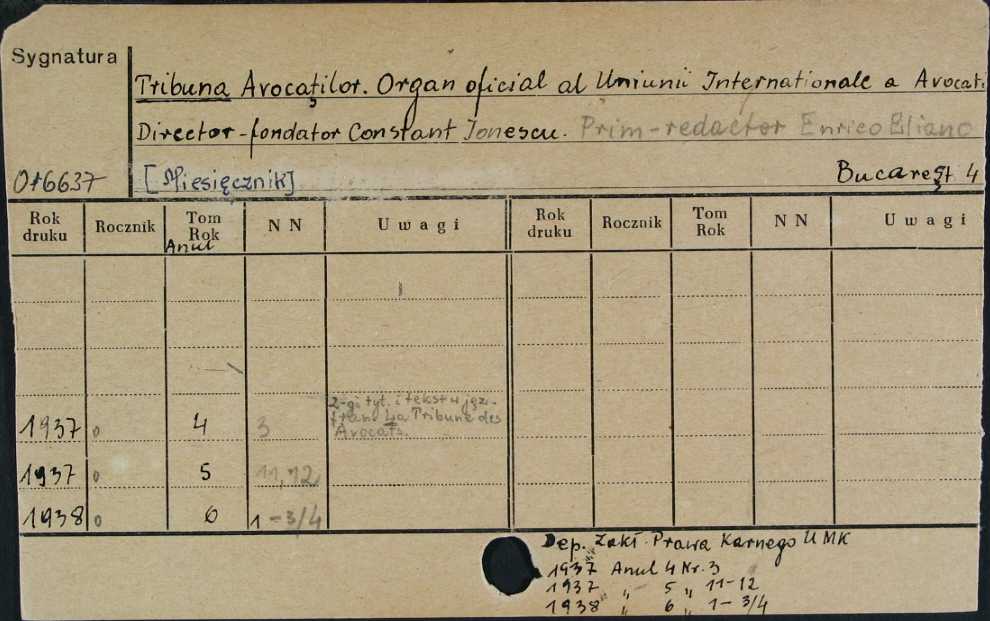 Sygnatura
Tribuna Avocaților. Organ oficial al Uniunii Internationale a Avocat
Director-fondator Constant Ionescu. Prim-redactor Enrico Eliano
016637 [Miesięcznik] București 4
Rok druku Rocznik Tom Rok NN Uwagi Rok druku Rocznik Tom Rok NN Uwagi
Anul
2-gi tyt. i tekst w jęz.
1937 0 4 3 franc. La Tribune des
Avocats.
1937 0 5 11,12
1938 0 6 1-3/4
Dep. Zakł. Prawa Karnego UMK
1937 Anul 4 Nr. 3
1937 " 5 " 11-12
1938 " 6 " 1-3/4